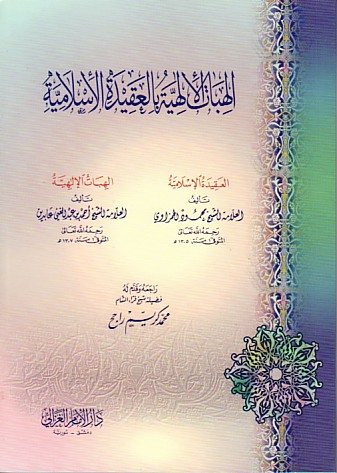 الهبات الإلهية بالعقيدة الإسلامية
العقيدة الإسلامية
تأليف
العلامة الشيخ محمود الحمزاوي
رحمه الله تعالى
المتوفى سنة ١٣٠٥ هـ
الهبات الإلهية
تأليف
العلامة الشيخ أحمد بن عبد الغني عابدين
رحمه الله تعالى
المتوفى سنة ١٣٠٧ هـ
راجعه وقدم له
فضيلة شيخ قراء الشام
محمد كريم راجح
دار الإمام الغزالي
دمشق - سورية